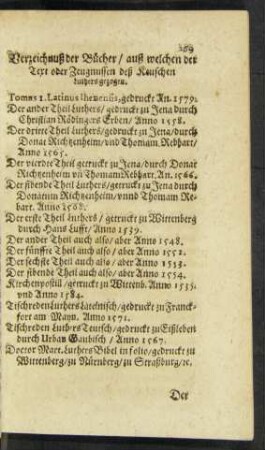 Verzeichnuß der Bücher / auß welchen der
Text oder Zeugnussen deß Keuschen
Luthers gezogen.
Tomus 1. Latinus Ihenensis, gedruckt An. 1579.
Der ander Theil Luthers / gedruckt zu Jena / durch
Christian Rödingers Erben / Anno 1558.
Der dritte Theil Luthers / gedruckt zu Jena / durch
Donat Richtzenheim / vnd Thomam Rebhart /
Anno 1565.
Der vierdte Theil getruckt zu Jena / durch Donat
Richtzenheim vñ Thomam Rebhart. An. 1566.
Der sibende Theil Luthers / getruckt zu Jena durch
Donatum Richtzenheim / vnnd Thomam Re-
bart. Anno 1568.
Der erste Theil Luthers / getruckt zu Wittenberg
durch Hans Lufft / Anno 1539.
Der ander Theil auch also / aber Anno 1548.
Der fünffte Theil auch also / aber Anno 1552.
Der sechste Theil auch also / aber Anno 1553.
Der sibende Theil auch also / aber Anno 1554.
Kirchenpostill / getruckt zu Wittenb. Anno 1535.
vnd Anno 1584.
Tischreden Luthers Lateinisch / gedruckt zu Franck-
fort am Mayn. Anno 1571.
Tischreden Luthers Teutsch / gedruckt zu Eißleben
durch Urban Gaubisch / Anno 1567.
Doctor Mart. Luthers Bibel in folio / gedruckt zu
Wittenberg / zu Nürnberg / zu Straßburg / ꝛc.
Der